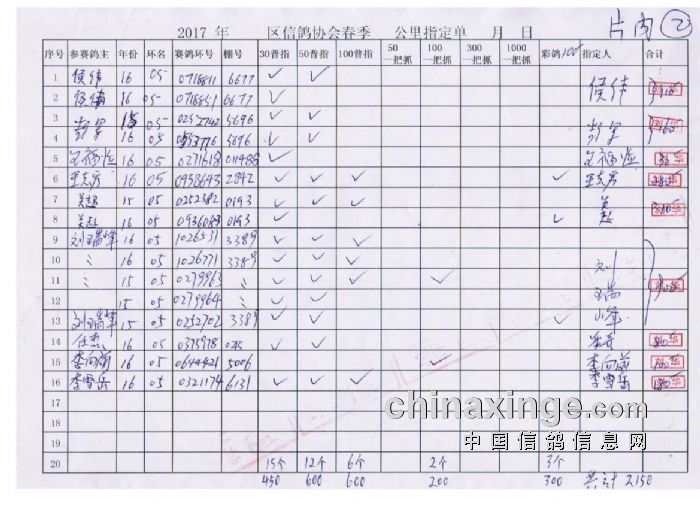 片内 ②
2017 年 区信鸽协会春季 公里指定单 月 日
序号 参赛鸽主 年份 环名 赛鸽环号 棚号 30普指 50普指 100普指 50一把抓 100一把抓 300一把抓 1000一把抓 彩鸽100 指定人 合计
1 侯伟 16 05 0718811 6677 ✓ ✓ 侯伟
2 侯伟 16 05 0718851 6677 ✓
3 15 05 0252742 5696 ✓ ✓
4 16 05 5696 ✓ ✓
5 16 05 0271618 ✓
6 16 05 0938643 2842 ✓ ✓ ✓ ✓
7 吴赵 15 05 0252382 0193 ✓ ✓ ✓ 吴
8 吴赵 16 05 0193 ✓ ✓ 赵
9 刘瑞峰 16 05 1026531 3389 ✓ ✓ ✓
10 〃 16 05 1026771 3389 ✓ ✓ ✓ 刘
11 〃 15 05 0279963 〃 ✓ ✓ ✓ ✓
12 15 05 0279964 〃 ✓ ✓ 瑞
13 刘瑞峰 15 05 0252702 3389 ✓ ✓ ✓ 峰
14 任杰 16 05 0375978 ✓ ✓
15 李向前 16 05 0644421 5006 ✓ 李向前
16 李雪岳 16 05 0321174 6131 ✓ ✓ ✓ 李雪岳
17
18
19
20 15个 12个 6个 2个 3个
450 600 600 200 300 共计 2150
chinaxinge.com
中国信鸽信息网